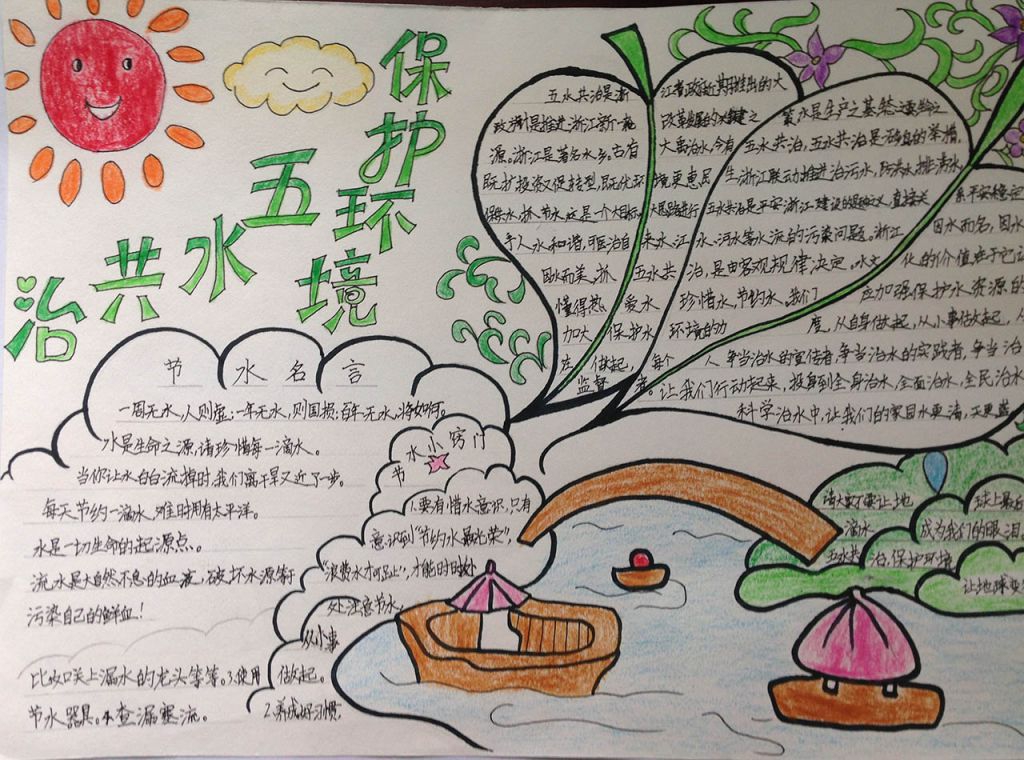 保护环境
五水共治
节水名言
一周无水,人则虚;一年无水,则国损;百年无水,将如何。
水是生命之源,请珍惜每一滴水。
当你让水白白流掉时,我们离干旱又近了一步。
每天节约一滴水,难时拥有太平洋。
水是一切生命的起源点。
流水是大自然不息的血液,破坏水源等于
污染自己的鲜血!
节水小窍门
1.要有惜水意识,只有
意识到“节约水最光荣”,
“浪费水才可耻”,才能时时处
处注意节水,
从小事
做起。
2.养成好习惯,
比如咲上漏水的龙头等等。3.使用
节水器具。4.查漏塞流。
五水共治是浙江省政府近期推出的大
政方针,是推进浙江新一轮改革发展的关键之
源。浙江是著名水乡。古有大禹治水,今有五水共治,五水共治是
既扩投资又促转型,既优环境更惠民生,浙江联动推进治污水,防洪水,排涝水,
保供水,抓节水,这是一个大目标。五水共治是平安浙江建设的题中之义,直接关系平安稳定
于人水和谐,可医治自来水、江水、河水等水流的污染问题。浙江因水而名,因水
因水而美,抓五水共治,是由客观规律决定。水文化的价值在于它让
懂得热爱水珍惜水,节约水。我们应加强保护水资源的
加大保护水环境的力度,从自身做起,从小事做起,从
在做起,每个人争当治水的宣传者,争当治水的实践者,争当治
监督者。让我们行动起来,投身到全身治水,全面治水,全民治水
科学治水中,让我们的家园水更清,天更蓝
请大家不要让地球上最后
一滴水成为我们的眼泪
五水共治,保护环境
让地球变